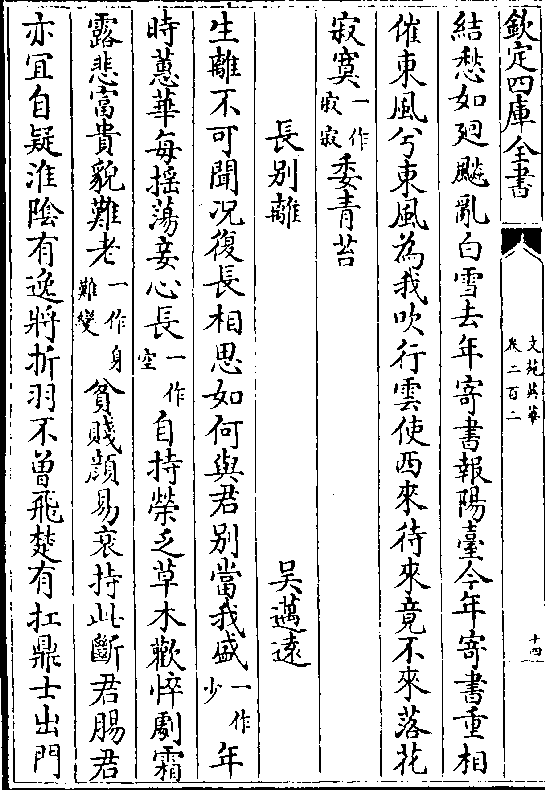 欽定四庫全書
文苑英華
卷二百二
十四
結愁如廻飈亂白雪去年寄書報陽臺今年寄書重相
催東風兮東風為我吹行雲使西來待來竟不來落花
寂寞一作寂寂委青苔
長别離 吴邁逺
生離不可聞况復長相思如何與君别當我盛一作少年
時蕙華每摇蕩妾心長一作空自持榮乏草木歡悴劇霜
露悲富貴貌難老一作身難變貧賤顔易衰持此斷君腸君
亦宜自疑淮陰有逸將折羽不曽飛楚有扛鼎士出門